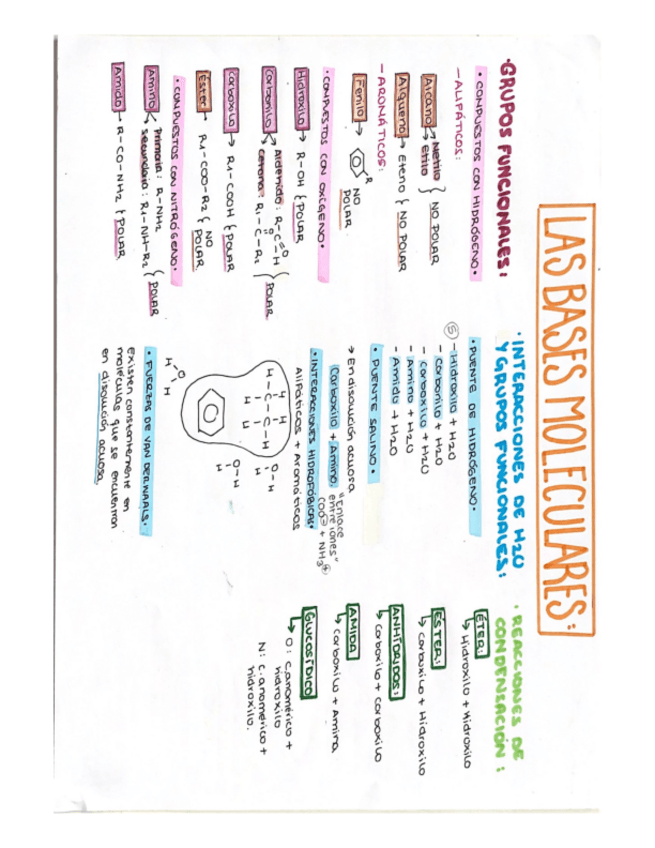 LAS BASES MOLECULARES:
·GRUPOS FUNCIONALES:
• COMPUESTOS CON HIDRÓGENO•
- ALIFÁTICOS:
Alcano Metilo
Etilo } NO POLAR
Alqueno → Eteno { NO POLAR
- AROMÁTICOS:
Fenilo → R NO
POLAR
• COMPUESTOS CON OXÍGENO•
Hidroxilo → R-OH { POLAR
Carbonilo Aldehído: R-C-H
O
cetona: R1-C-R2 } POLAR
Carboxilo → R1-COOH { POLAR
Éster → R1-COO-R2 { NO
POLAR
• COMPUESTOS CON NITRÓGENO•
Amino Primaria: R-NH2
secundaria: R1-NH-R2 } POLAR
Amido → R-CO-NH2 { POLAR
· INTERACCIONES DE H2O
Y GRUPOS FUNCIONALES:
• PUENTE DE HIDRÓGENO•
5 - Hidroxilo + H2O
- carbonilo + H2O
- carboxilo + H2O
- Amino + H2O
- Amido + H2O
• PUENTE SALINO•
→ En disolución acuosa
Carboxilo + Amino "Enlace
entre iones"
COO⊖ + NH3⊕
• INTERACCIONES HIDROFÓBICAS•
Alifáticos + Aromáticos
H H
H-C-C-H
H H
O-H
H
O-H
H
H-O
H
• FUERZAS DE VAN DERWAALS•
existen constantemente en
moléculas que se encuentran
en disolución acuosa
· REACCIONES DE
CONDENSACIÓN:
ÉTER:
↳ Hidroxilo + Hidroxilo
ÉSTER:
↳ carboxilo + Hidroxilo
ANHÍDRIDOS:
↳ carboxilo + carboxilo
AMIDA
↳ carboxilo + Amina
GLUCOSÍDICO
↳ O: c.anomérico +
hidroxilo
N: c.anomérico +
hidroxilo.